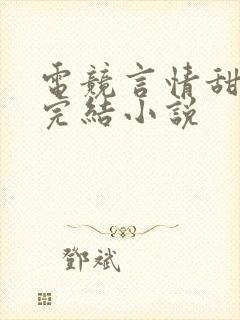 電競言情甜
完結小說
鄧斌